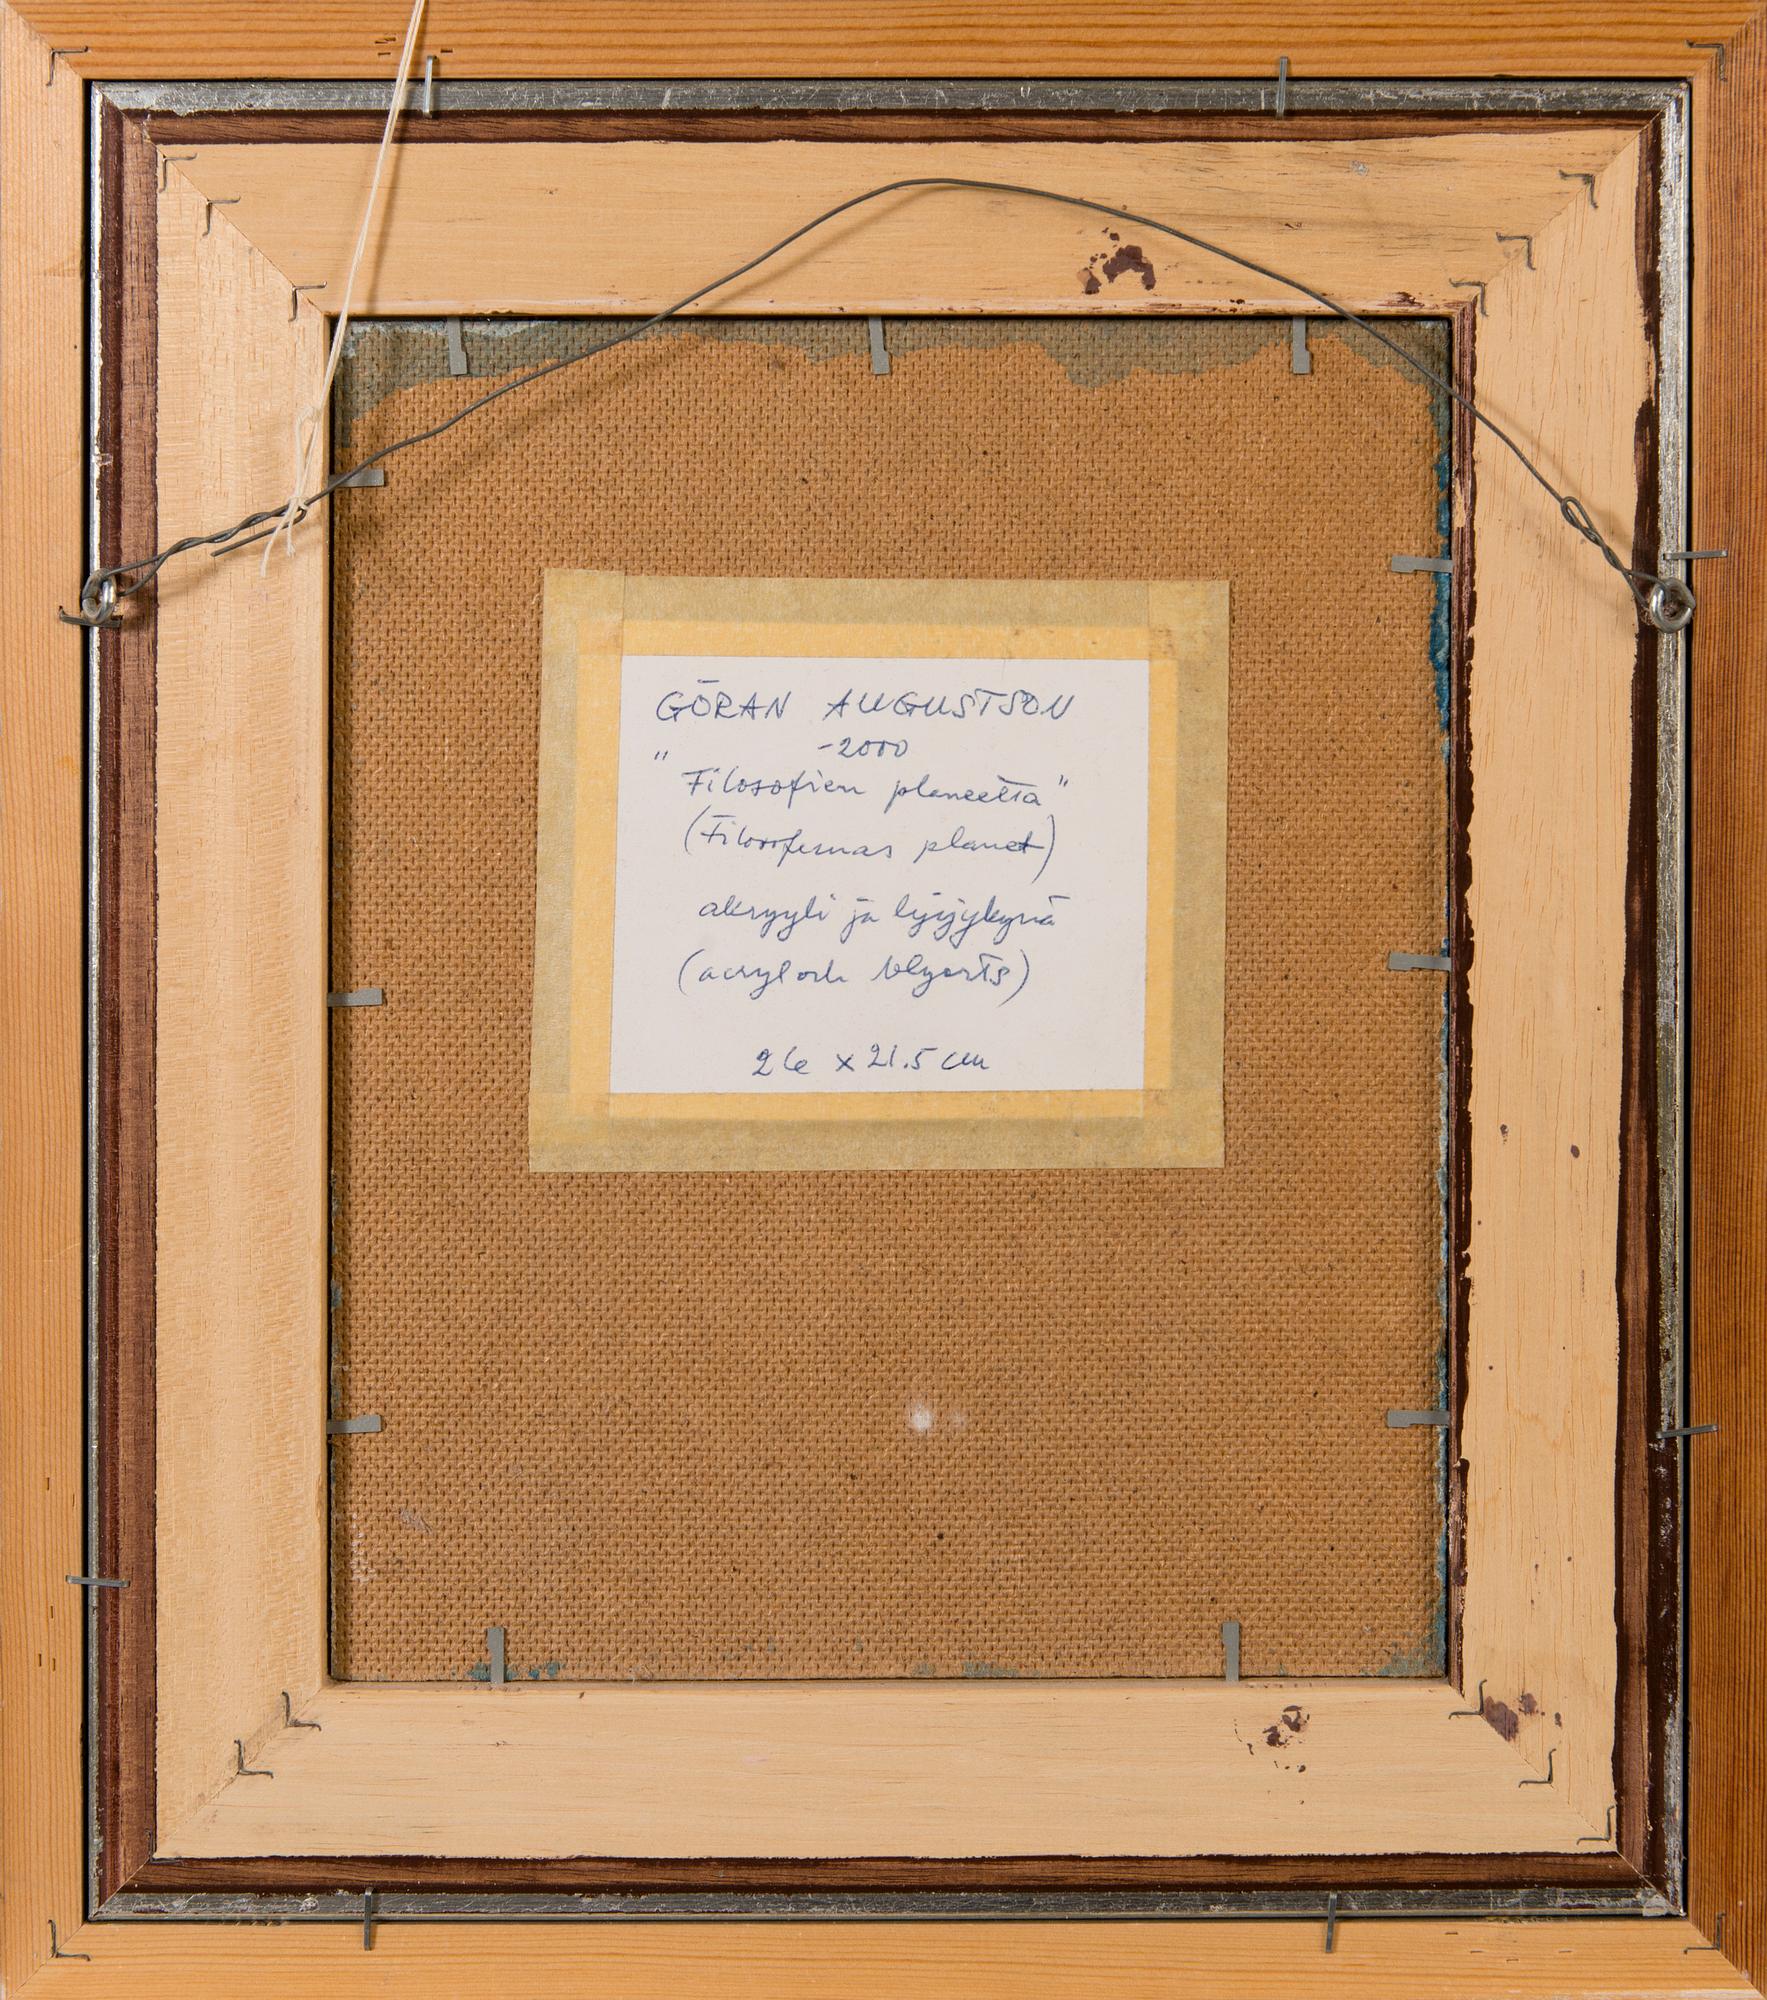 GÖRAN AUGUSTSON
-2000
"Filosofien planeetta"
(Filosofernas planet)
akryyli ja lyijykynä
(acryl och blyerts)
26 x 21.5 cm